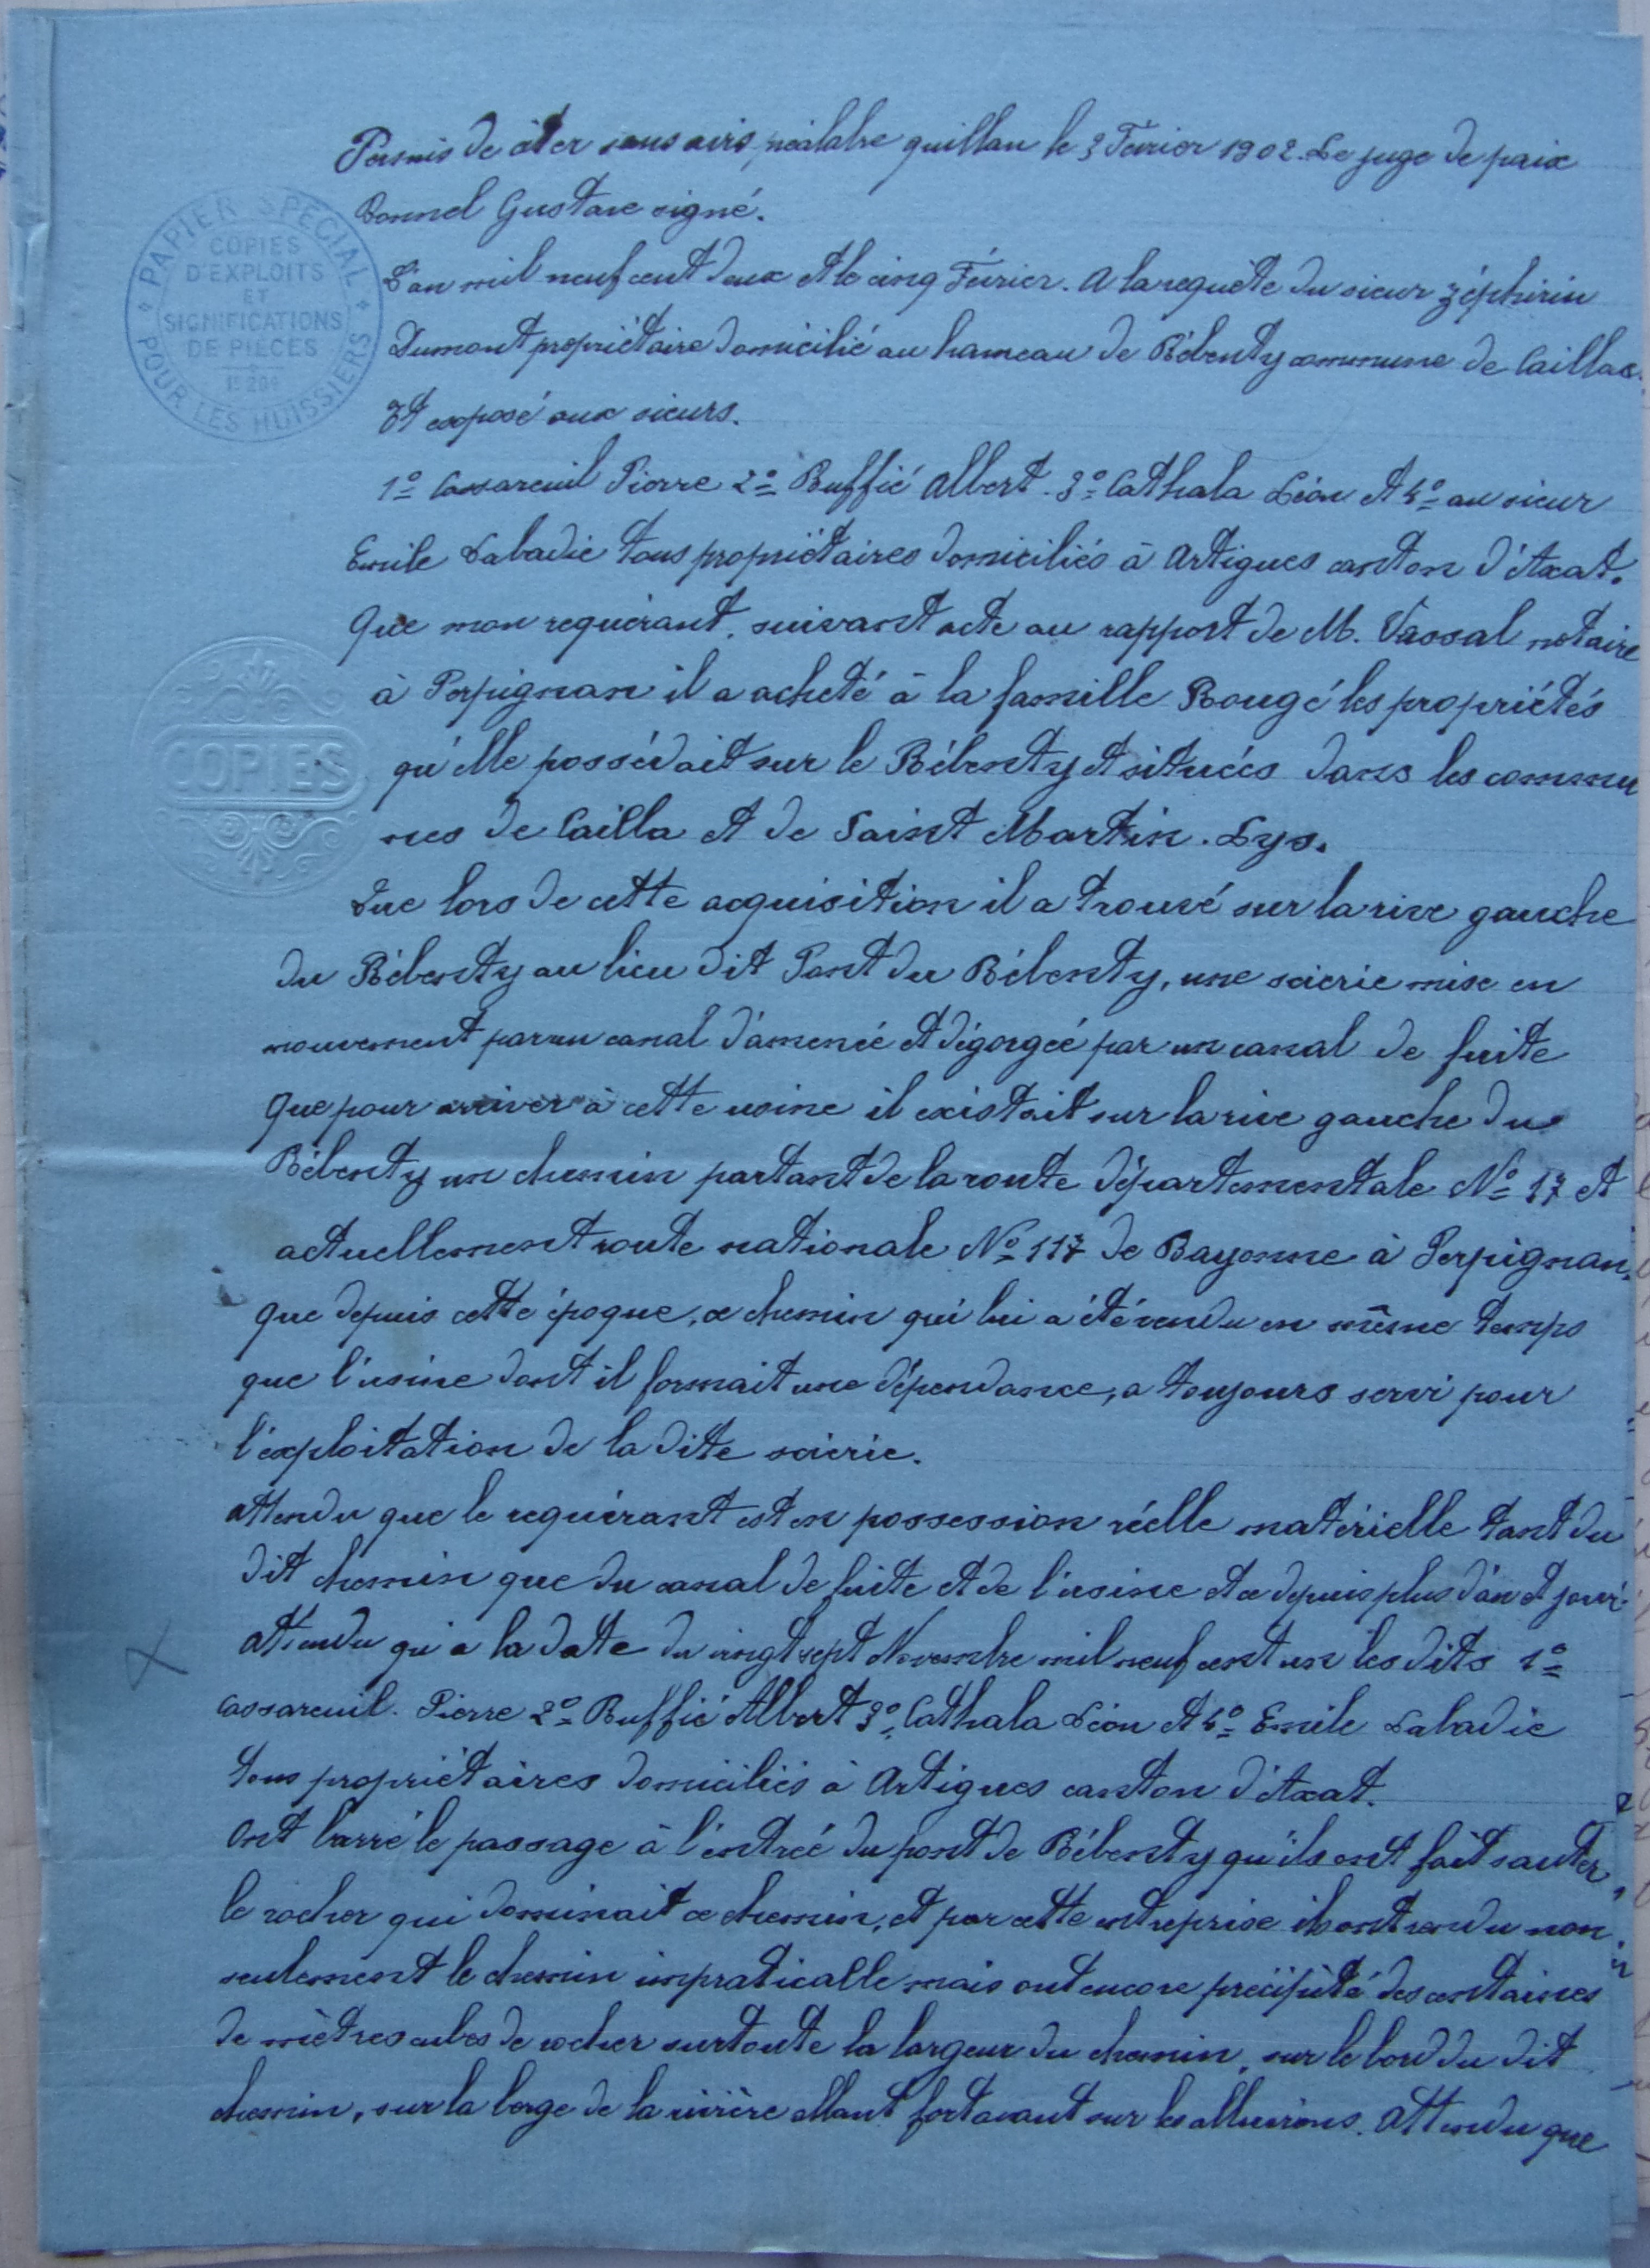 Permis de citer sans avis préalable quillan le 3 Février 1902. Le juge de paix
Bonnel Gustave signé.
PAPIER SPECIAL
POUR LES HUISSIERS
COPIES
D'EXPLOITS
ET
SIGNIFICATIONS
DE PIECES
L'an mil neuf cent deux et le cinq Février. A la requête du sieur Zéphirin
Dumont propriétaire domicilié au hameau de Rébenty commune de Cailla
Et exposé aux sieurs.
1º Cassareuil Pierre 2º Buffié Albert. 3º Cathala Léon et 4º au sieur
Emile Labadie tous propriétaires domiciliés à Artigues canton d'Axat.
Que mon requérant, suivant acte au rapport de M. Vassal notaire
à Perpignan il a acheté à la famille Rougé les propriétés
qu'elle possédait sur le Rébenty et situées dans les commu
COPIES
nes de Cailla et de Saint Martin. Lys.
Que lors de cette acquisition il a trouvé sur la rive gauche
du Rébenty au lieu dit Pont du Rébenty, une scierie mise en
mouvement par un canal d'amenée et dégorgée par un canal de fuite
Que pour arriver à cette usine il existait sur la rive gauche du
Rébenty un chemin partant de la route départementale Nº 17 et
actuellement route nationale Nº 117 de Bayonne à Perpignan,
que depuis cette époque, ce chemin qui lui a été vendu en même temps
que l'usine dont il formait une dépendance, a toujours servi pour
l'exploitation de la dite scierie.
Attendu que le requérant est en possession réelle matérielle tant du
dit chemin que du canal de fuite et de l'usine et ce depuis plus d'an et jour.
Attendu qu'a la date du vingt sept Novembre mil neuf cent un les dits 1º
Cassareuil. Pierre 2º Buffié Albert 3º Cathala Léon et 4º Emile Labadie
tous propriétaires domiciliés à Artigues canton d'Axat.
Ont barré le passage à l'entrée du pont de Rébenty qu'ils ont fait sauter
le rocher qui dominait ce chemin, et par cette entreprise ils ont rendu non
seulement le chemin impraticable mais ont encore précipité des centaines
de mètres cubes de rocher sur toute la largeur du chemin, sur le bord du dit
chemin, sur la berge de la rivière allant fort avant sur les alluvions. Attendu que